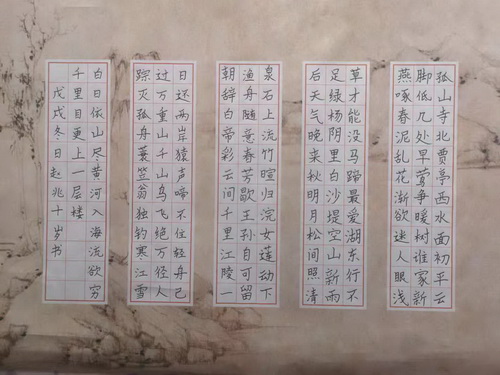 孤山寺北贾亭西水面初平云
脚低几处早莺争暖树谁家新
燕啄春泥乱花渐欲迷人眼浅
草才能没马蹄最爱湖东行不
足绿杨阴里白沙堤空山新雨
后天气晚来秋明月松间照清
泉石上流竹喧归浣女莲动下
渔舟随意春芳歇王孙自可留
朝辞白帝彩云间千里江陵一
日还两岸猿声啼不住轻舟已
过万重山千山鸟飞绝万径人
踪灭孤舟蓑笠翁独钓寒江雪
白日依山尽黄河入海流欲穷
千里目更上一层楼
戊戌冬日赵兆十岁书